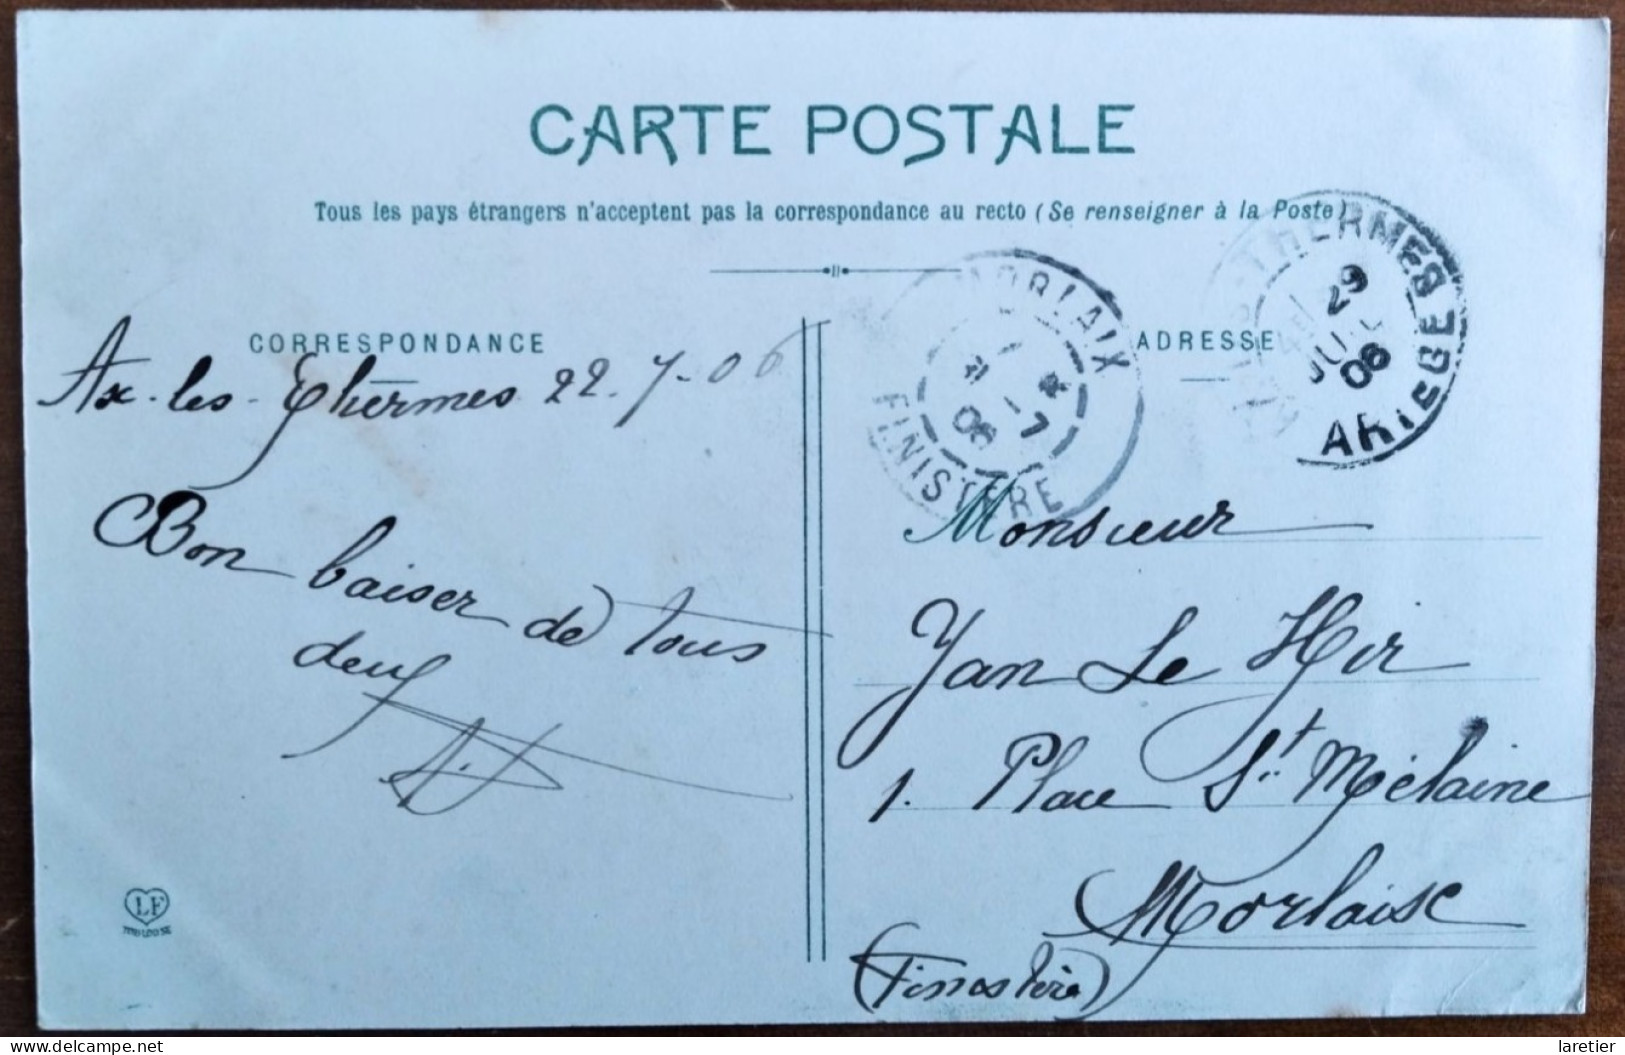 CARTE POSTALE
Tous les pays étrangers n'acceptent pas la correspondance au recto (Se renseigner à la Poste)
CORRESPONDANCE
Ax-les-Thermes 22-7-06
Bon baiser de tous
deux
LF
TOULOUSE
MORLAIX
1 - 7
06
FINISTÈRE
THERMES
29
JUIL
06
ARIEGE
ADRESSE
Monsieur
Yan Le Hir
1. Place St Mélaine
Morlaix
(Finistère)
delcampe.net
laretier